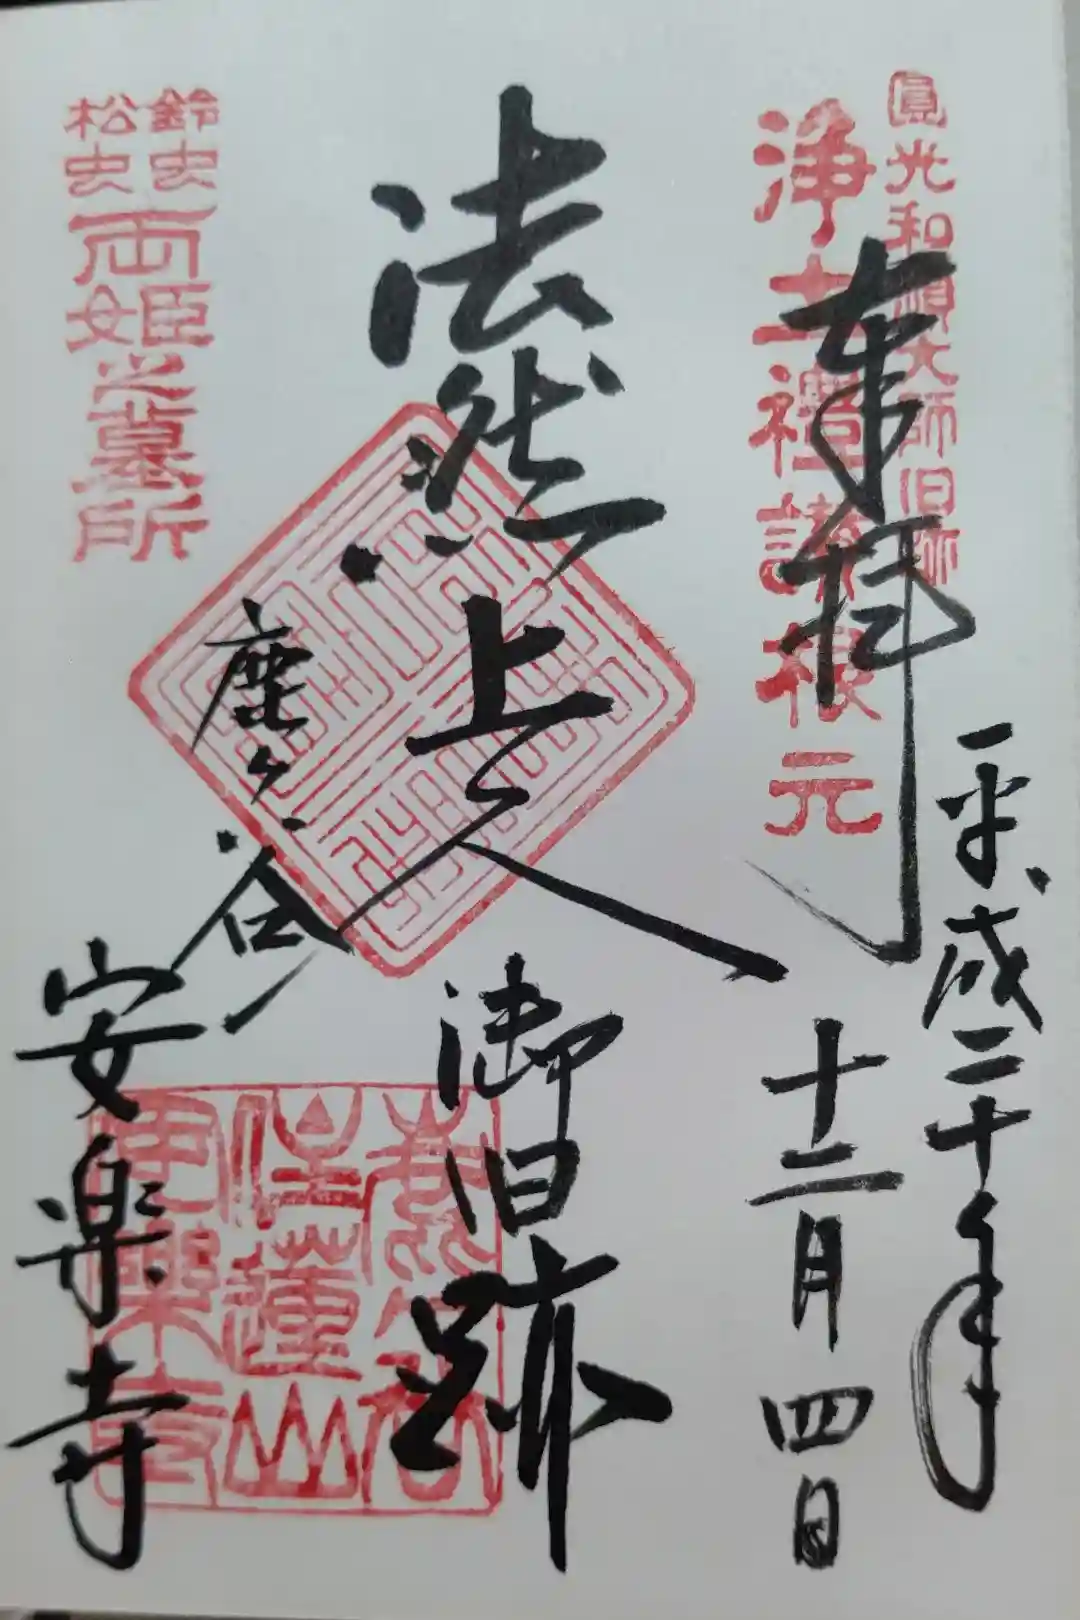 圓光和順大師旧跡
浄土禮讃根元
奉拝
平成三十年
十二月四日
法然上人
御旧跡
鹿ヶ谷
安楽寺
鈴虫
松虫
両姫之墓所
住蓮山
安樂寺